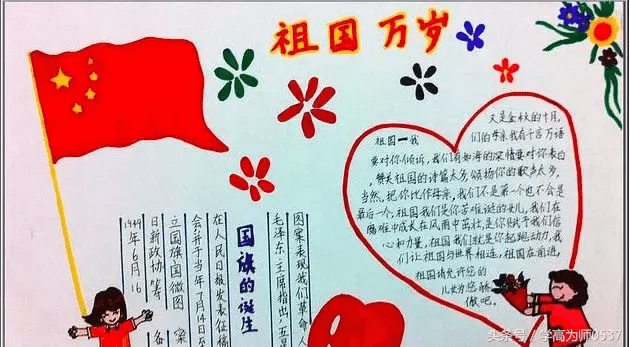 祖国万岁
又是金秋的十月,
祖国一我们的母亲我有千言万语
要对你倾诉,我们有如海的深情要对你表白
,赞美祖国的诗篇太多,颂扬你的歌声太多,
当然,把你比作母亲,我们不是第一个也不会是
最后一个,祖国我们是你苦难诞的女儿,我们在
难中成长在风雨中茁壮,是你赋予我们信
心和力量,祖国我们就是你起跑动力,我
们让祖国与世界相连,祖国在前进,
祖国请允许您的
儿女为您骄
傲吧。
国旗的诞生
1949年6月16
日新政协筹备
立国旗国徽图案
会并于当年7月14日至
在人民日报发表征稿
毛泽东主席指出,五
图案表现我们革命人
头条号／学高为师0537